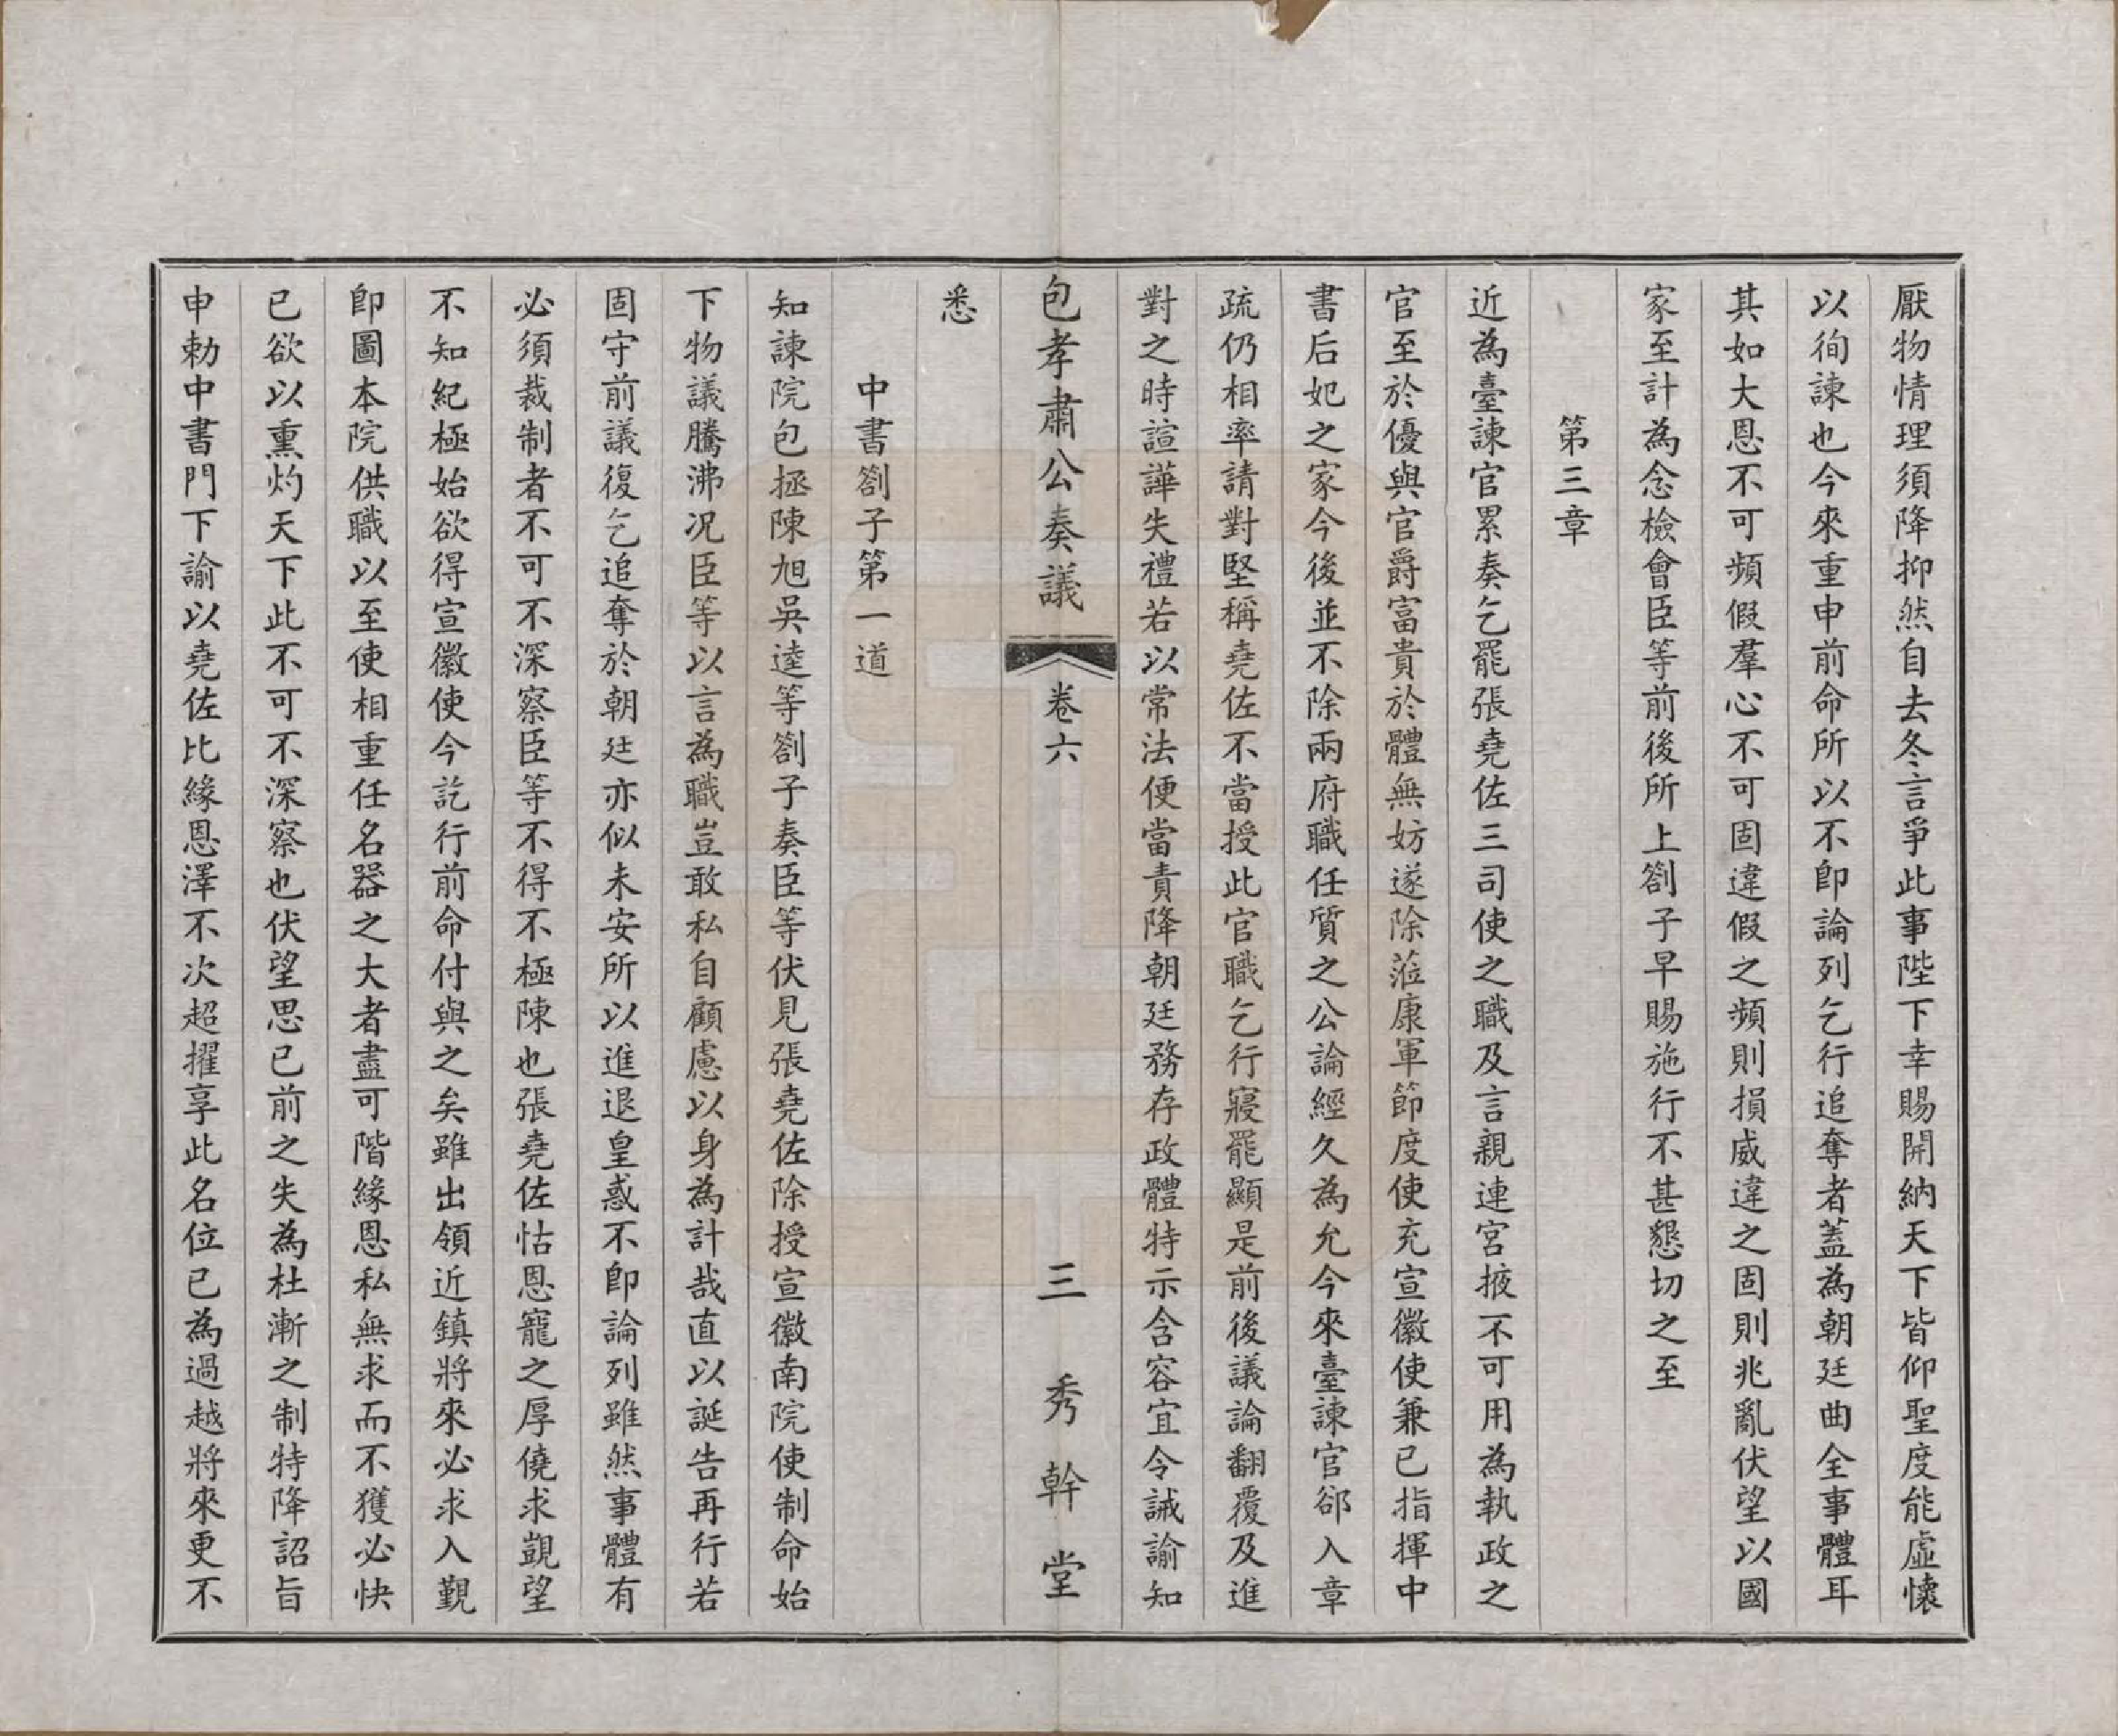 厭物情理須降抑然自去冬言爭此事陛下幸賜開納天下皆仰聖度能虛懷
以徇諫也今來重申前命所以不卽論列乞行追奪者蓋為朝廷曲全事體耳
其如大恩不可頻假羣心不可固違假之頻則損威違之固則兆亂伏望以國
家至計為念檢會臣等前後所上劄子早賜施行不甚懇切之至
第三章
近為臺諫官累奏乞罷張堯佐三司使之職及言親連宮掖不可用為執政之
官至於優與官爵富貴於體無妨遂除蒞康軍節度使充宣徽使兼已指揮中
書后妃之家今後並不除兩府職任質之公論經久為允今來臺諫官郤入章
疏仍相率請對堅稱堯佐不當授此官職乞行寢罷顯是前後議論翻覆及進
對之時諠譁失禮若以常法便當責降朝廷務存政體特示含容宜令誡諭知
包孝肅公奏議 卷六 三 秀幹堂
悉
中書劄子第一道
知諫院包拯陳旭吳逵等劄子奏臣等伏見張堯佐除授宣徽南院使制命始
下物議騰沸况臣等以言為職豈敢私自顧慮以身為計哉直以誕告再行若
固守前議復乞追奪於朝廷亦似未安所以進退皇惑不卽論列雖然事體有
必須裁制者不可不深察臣等不得不極陳也張堯佐怙恩寵之厚僥求覬望
不知紀極始欲得宣徽使今訖行前命付與之矣雖出領近鎮將來必求入覲
卽圖本院供職以至使相重任名器之大者盡可階緣恩私無求而不獲必快
已欲以熏灼天下此不可不深察也伏望思已前之失為杜漸之制特降詔旨
申勅中書門下諭以堯佐比緣恩澤不次超擢享此名位已為過越將來更不